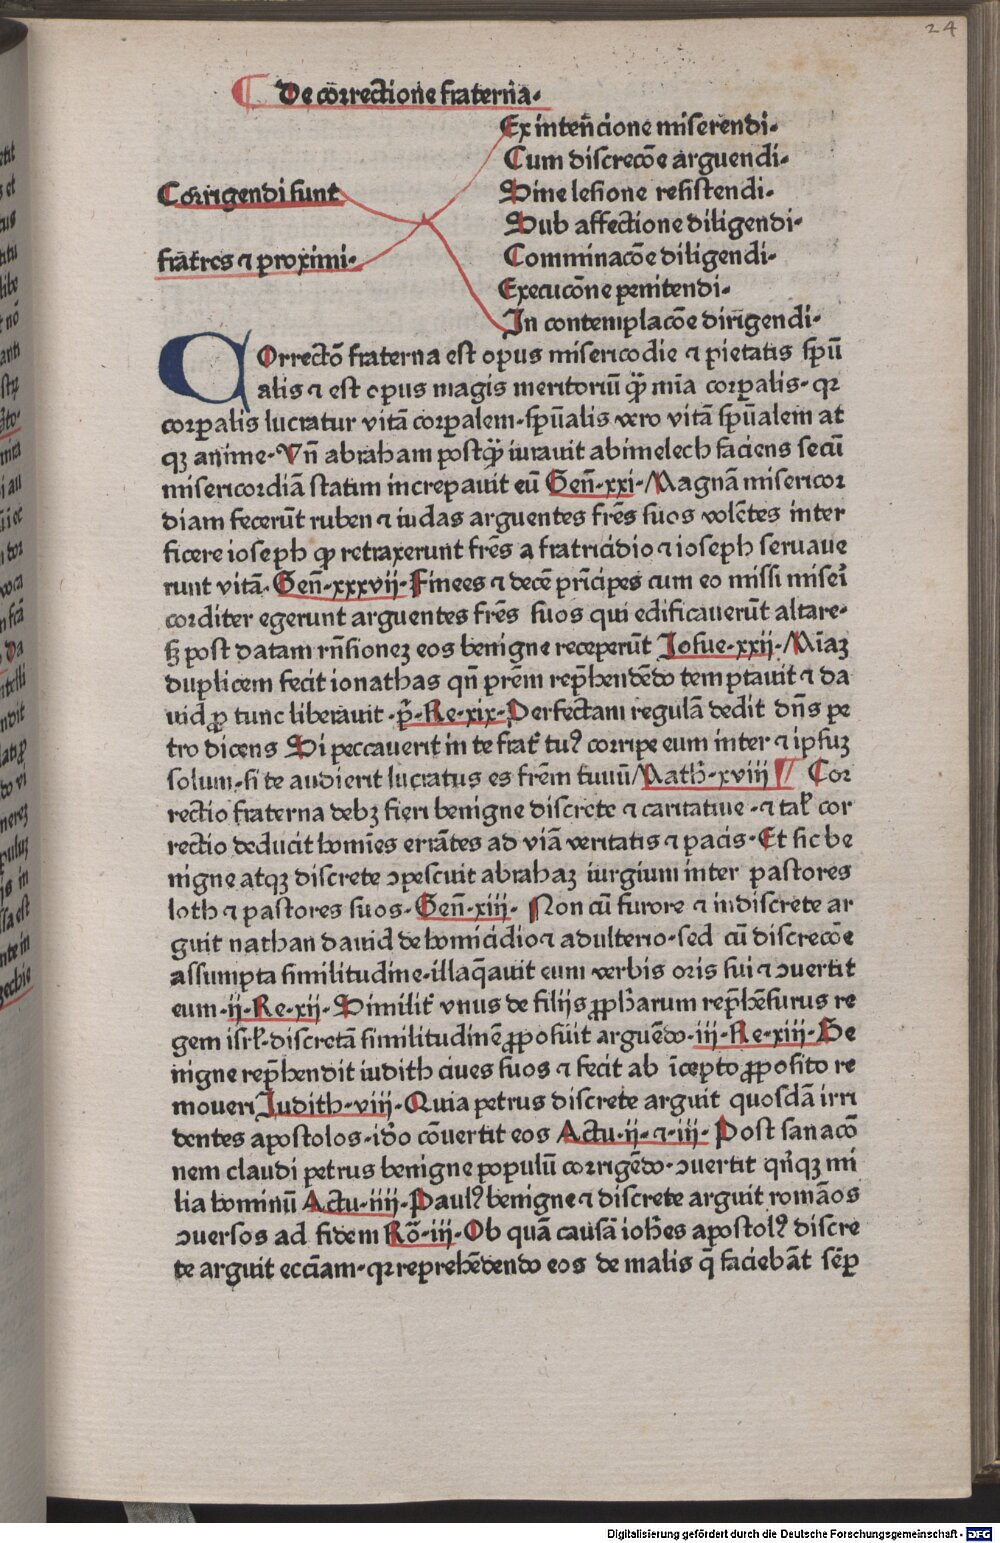 24
De correctione fraterna.
Ex intencione miserendi.
Cum discrecõe arguendi.
Corrigendi sunt
Sine lesione resistendi.
Sub affectione diligendi.
fratres ⁊ proximi.
Comminacõe diligendi.
Execucõne penitendi.
In contemplacõe dirigendi.
COrrectõ fraterna est opus misericodie ⁊ pietatis spũ
alis ⁊ est opus magis meritoriũ q̃ mĩa corꝑalis. qꝛ
corꝑalis lucratur vitã corꝑalem. spũalis vero vitã spũalem at
qꝫ anime. Vñ abraham postq̃ iurauit abimelech faciens secũ
misericordiã statim increpauit eũ Geñ. xxi. Magnã misericor
diam fecerũt ruben ⁊ iudas arguentes frẽs suos volẽtes inter
ficere ioseph qꝫ retraxerunt frẽs a fratricidio ⁊ ioseph seruaue
runt vitã. Geñ. xxxvij. Finees ⁊ decẽ prĩcipes cum eo missi miseĩ
corditer egerunt arguentes frẽs suos qui edificauerũt altare.
sꝫ post datam rñsionez eos benigne receperũt Josue. xxij. Mĩaz
duplicem fecit ionathas qñ prẽm rep̃hendẽdo temptauit ⁊ da
uid ꝓ tunc liberauit. p̃. Re. xix. Perfectam regulã dedit dñs pe
tro dicens Si peccauerit in te frat̃ tuꝰ corripe eum inter ⁊ ipsuz
solum. si te audierit lucratus es frẽm tuuũ Math. xviij ¶ Cor
rectio fraterna debꝫ fieri benigne discrete ⁊ caritatiue. ⁊ tal̃ cor
rectio deducit homĩes errãtes ad viã veritatis ⁊ pacis. Et sic be
nigne atqꝫ discrete ɔpescuit abrahaz iurgium inter pastores
loth ⁊ pastores suos. Geñ. xiij. Non cũ furore ⁊ indiscrete ar
guit nathan dauid de homicidio ⁊ adulterio. sed cũ discrecõe
assumpta similitudine. illaq̃auit eum verbis oris sui ⁊ ɔuertit
eum. ij. Re. xij. Similit̃ vnus de filijs ꝓpharum rep̃hẽsurus re
gem isrl̃. discretã similitudinẽ ꝓposuit arguẽdo. iij. Re. xiij. Be
nigne rep̃hendit iudith ciues suos ⁊ fecit ab ĩcepto ꝓposito re
moueri Judith. viij. Quia petrus discrete arguit quosdã irri
dentes apostolos. idõ cõuertit eos Actu. ij. ⁊. iij. Post sanacõ
nem claudi petrus benigne populũ corrigẽdo. ɔuertit qñqꝫ mi
lia hominũ Actu. iiij. Paulꝰ benigne ⁊ discrete arguit romãos
ɔuersos ad fidem Rõ. iij. Ob quã causã iohẽs apostolꝰ discre
te arguit eccĩam. qꝛ reprehẽdendo eos de malis q̃ faciebãt sẽꝑ
Digitalisierung gefördert durch die Deutsche Forschungsgemeinschaft - DFG